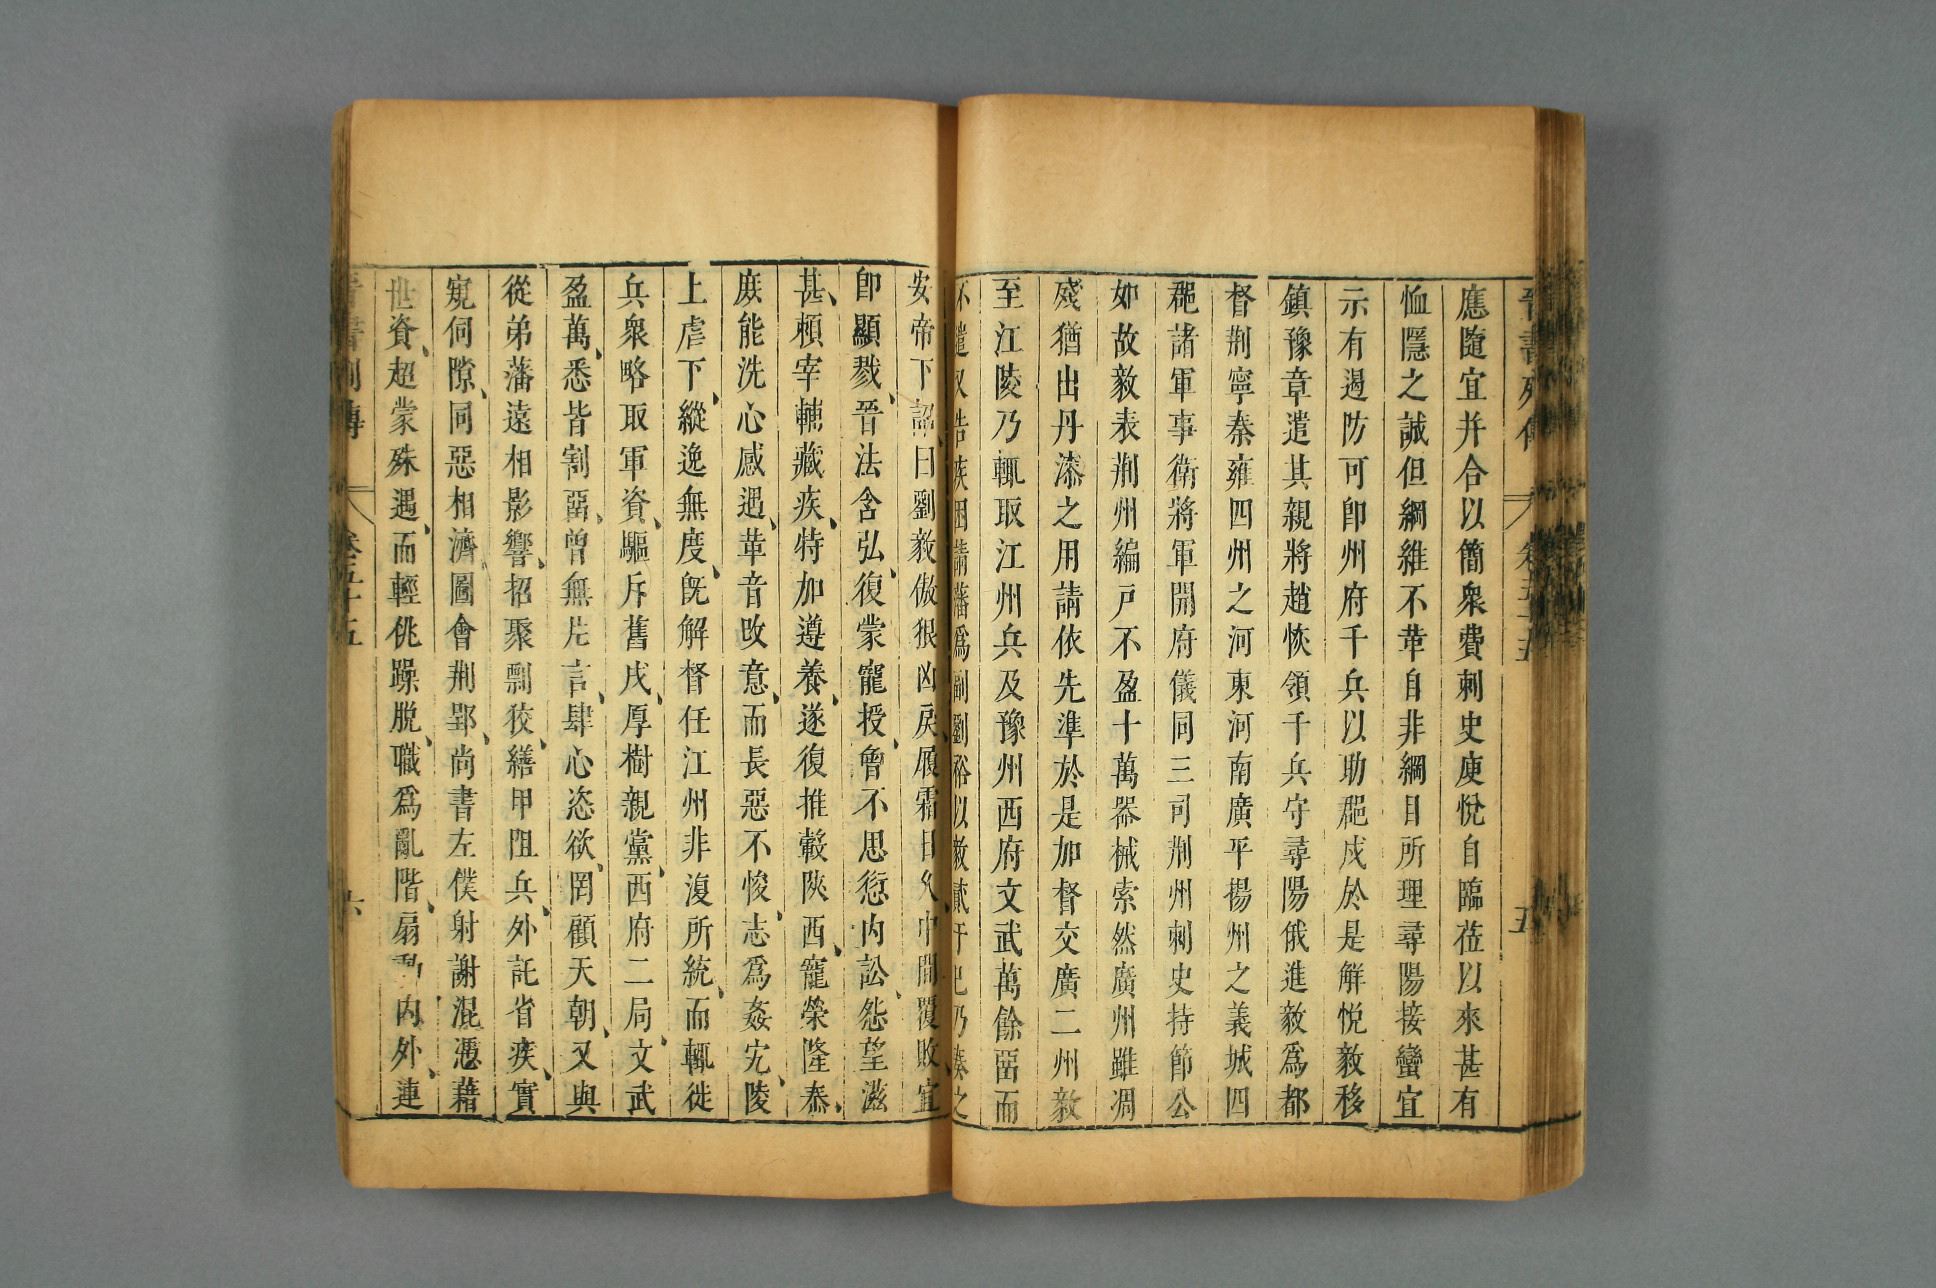 晉書列傳 卷五十五 五
應隨宜并合以簡衆費刺史庾悅自臨莅以來甚有
恤隱之誠但綱維不革自非綱目所理尋陽接蠻宜
示有遏防可卽州府千兵以助郡戍於是解悅毅移
鎮豫章遣其親將趙恢領千兵守尋陽俄進毅爲都
督荆寧秦雍四州之河東河南廣平揚州之義城四
郡諸軍事衛將軍開府儀同三司荆州刺史持節公
如故毅表荆州編戸不盈十萬器械索然廣州雖凋
殘猶出丹漆之用請依先準於是加督交廣二州毅
至江陵乃輒取江州兵及豫州西府文武萬餘畱而
不遣又告疾困請藩爲副劉裕以毅貳于已乃奏之
安帝下詔曰劉毅傲狠凶戾履霜日久中間覆敗宜
卽顯戮晉法含弘復蒙寵授曾不思愆内訟怨望滋
甚賴宰輔藏疾特加遵養遂復推轂陝西寵榮隆泰
庶能洗心感遇革音改意而長惡不悛志爲姦宄陵
上虐下縱逸無度旣解督任江州非復所統而輒徙
兵衆略取軍資驅斥舊戍厚樹親黨西府二局文武
盈萬悉皆割畱曾無片言肆心恣欲罔顧天朝又與
從弟藩遠相影響招聚剽狡繕甲阻兵外託省疾實
窺伺隙同惡相濟圖會荆郢尚書左僕射謝混憑藉
世資超蒙殊遇而輕佻躁脫職爲亂階扇動内外連
晉書列傳 卷五十五 六